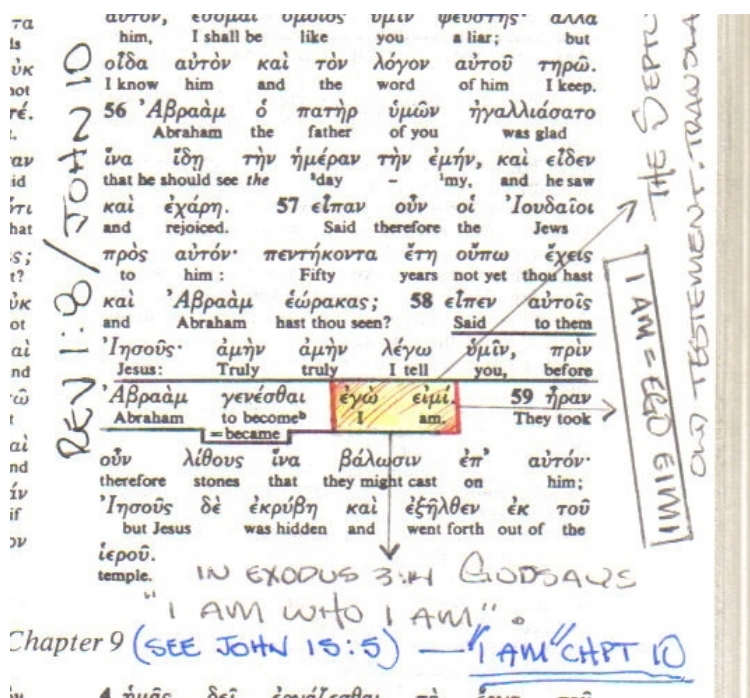 αὐτόν, ἔσομαι ὅμοιος ὑμῖν ψεύστης· ἀλλὰ
him, I shall be like you a liar; but
οἶδα αὐτὸν καὶ τὸν λόγον αὐτοῦ τηρῶ.
I know him and the word of him I keep.
56 Ἀβραὰμ ὁ πατὴρ ὑμῶν ἠγαλλιάσατο
Abraham the father of you was glad
ἵνα ἴδῃ τὴν ἡμέραν τὴν ἐμήν, καὶ εἶδεν
that he should see the ²day – ¹my, and he saw
καὶ ἐχάρη. 57 εἶπαν οὖν οἱ Ἰουδαῖοι
and rejoiced. Said therefore the Jews
πρὸς αὐτόν· πεντήκοντα ἔτη οὔπω ἔχεις
to him: Fifty years not yet thou hast
καὶ Ἀβραὰμ ἑώρακας; 58 εἶπεν αὐτοῖς
and Abraham hast thou seen? Said to them
Ἰησοῦς· ἀμὴν ἀμὴν λέγω ὑμῖν, πρὶν
Jesus: Truly truly I tell you, before
Ἀβραὰμ γενέσθαι ἐγὼ εἰμί. 59 ἦραν
Abraham to becomeᵇ I am. They took
= became
οὖν λίθους ἵνα βάλωσιν ἐπ' αὐτόν·
therefore stones that they might cast on him;
Ἰησοῦς δὲ ἐκρύβη καὶ ἐξῆλθεν ἐκ τοῦ
but Jesus was hidden and went forth out of the
ἱεροῦ.
temple.
IN EXODUS 3:14 GOD SAYS
"I AM WHO I AM".
Chapter 9 (SEE JOHN 15:5) — "I AM" CHPT 10
REV 1:8 / JOHN 10
I AM = EGO EIMI
THE
OLD TESTEMENT.